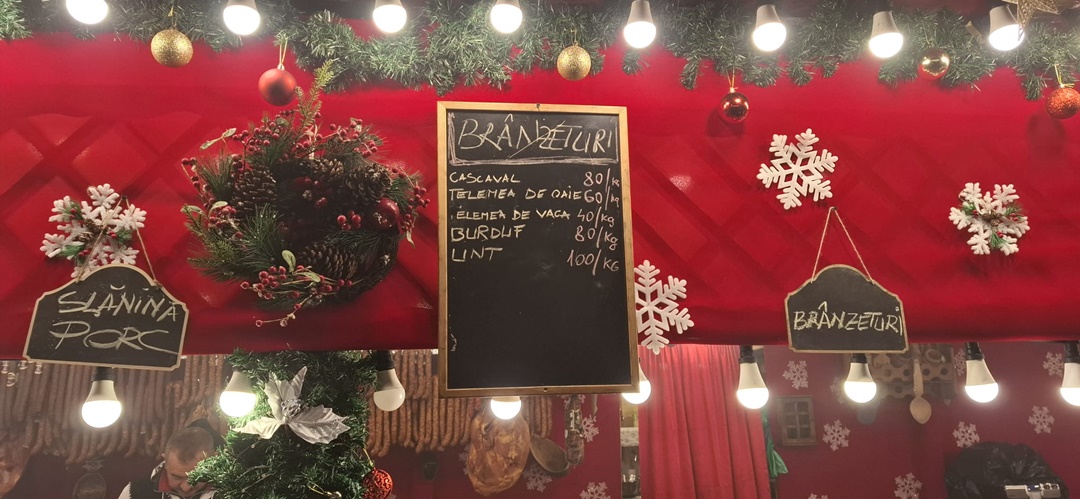 BRÂNZETURI
CASCAVAL 80/kg
TELEMEA DE OAIE 60/kg
ELEMEA DE VACA 40/kg
BURDUF 80/kg
UNT 100/KG
SLĂNINĂ
PORC
BRÂNZETURI